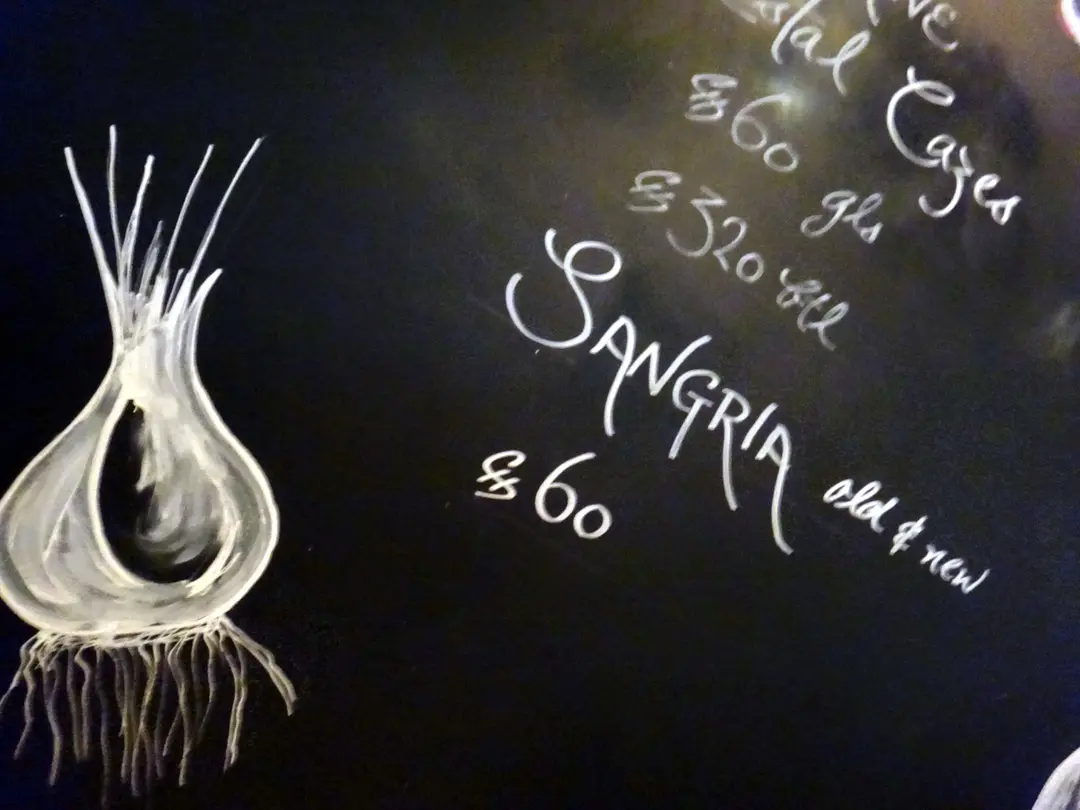 Cazes
60 gls
320 btl
SANGRIA old & new
60